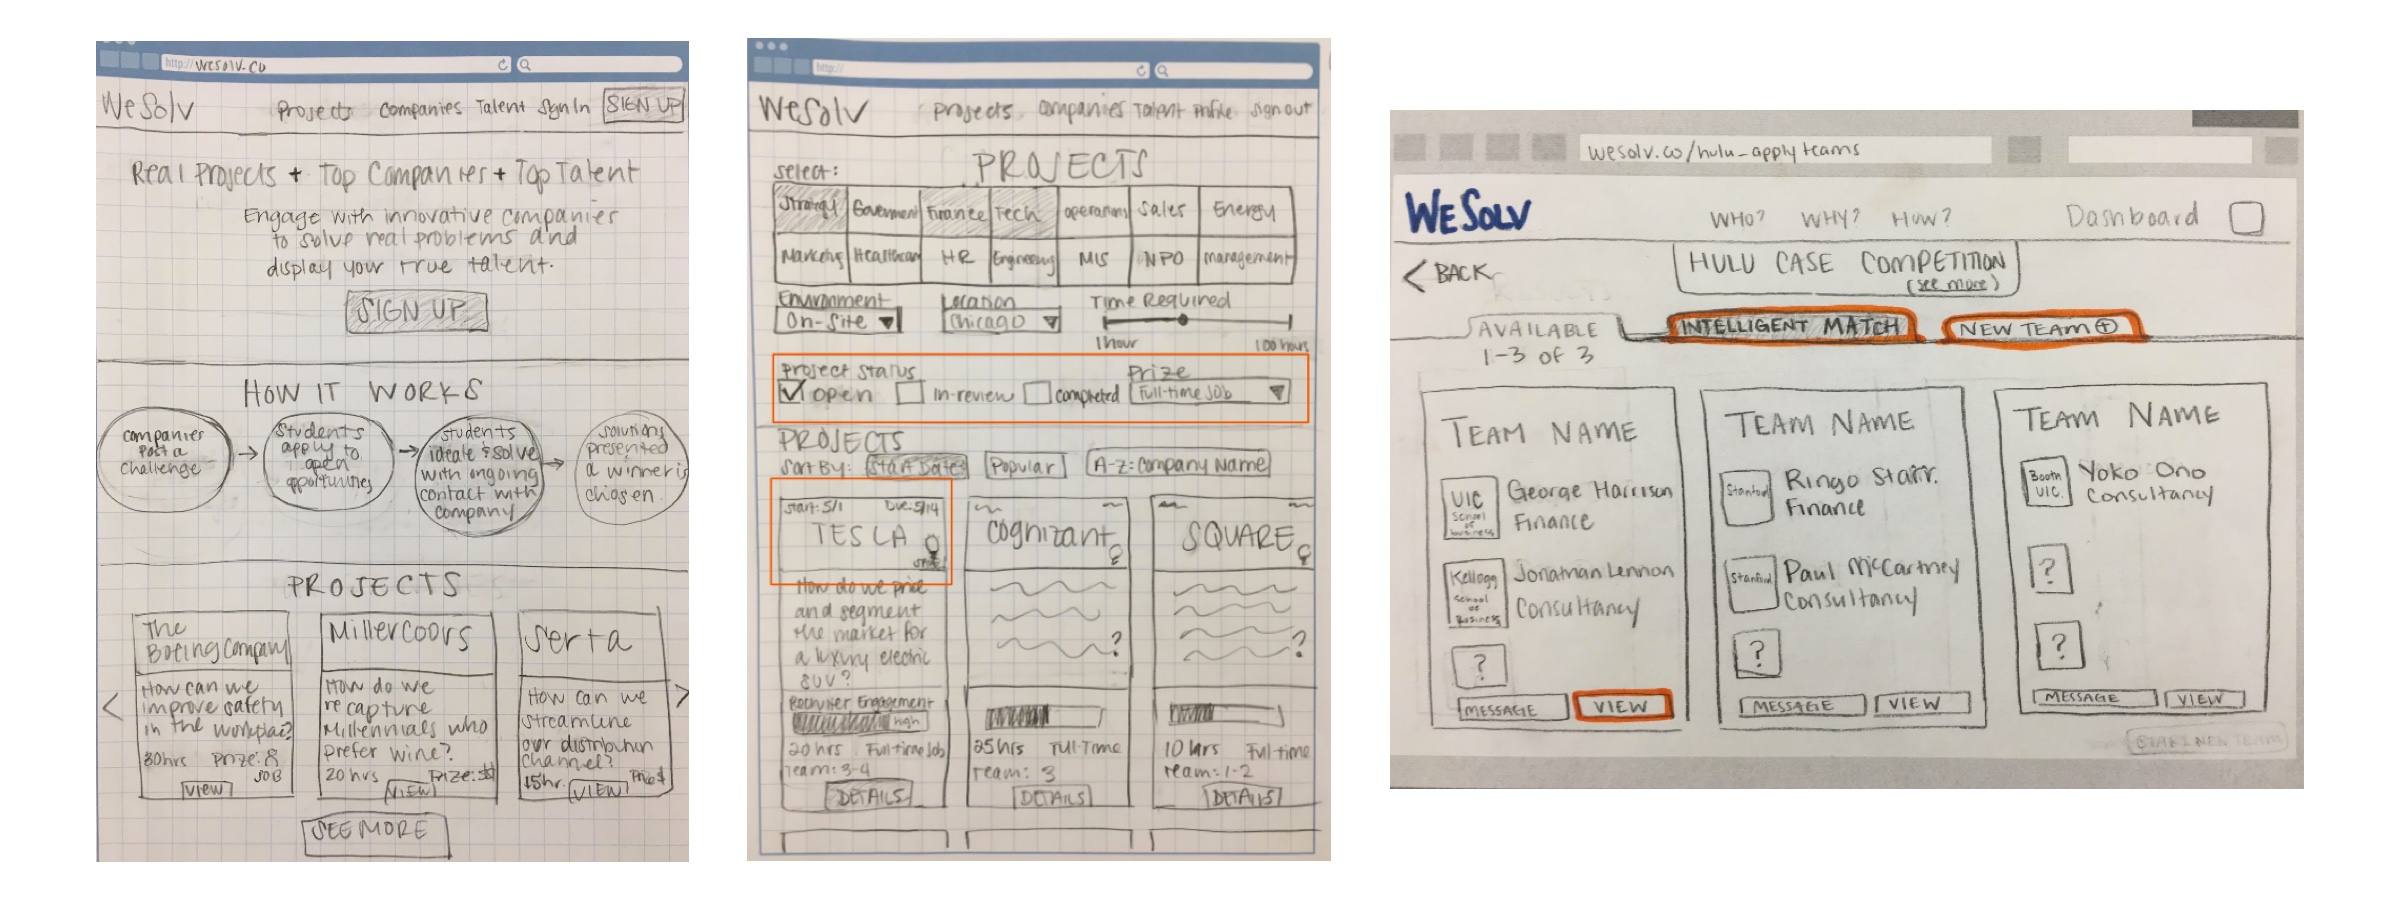 http:// wesolv.co
WeSolv Projects Companies Talent Sign In SIGN UP
Real Projects + Top Companies + Top Talent
Engage with innovative companies
to solve real problems and
display your true talent.
SIGN UP
HOW IT WORKS
companies
post a
challenge
students
apply to
open
opportunities
students
ideate & solve
with ongoing
contact with
company
solutions
presented
a winner is
chosen
PROJECTS
The
Boeing Company
How can we
improve safety
in the workplace?
30hrs Prize:
JOB
VIEW
Millercoors
How do we
recapture
Millennials who
prefer wine?
20 hrs Prize: $
VIEW
Serta
How can we
streamline
our distribution
channel?
15hr. Prize $
VIEW
<
>
SEE MORE
http://
WeSolv Projects Companies Talent Profile Sign out
select: PROJECTS
Strategy Government Finance Tech operations Sales Energy
Marketing Healthcare HR Engineering MIS NPO management
Environment Location Time Required
On-Site Chicago
1 hour 100 hours
Project Status Prize
Open In-review completed Full-time Job
PROJECTS
Sort By: Start Date Popular A-Z: Company Name
Start: 5/1 Due: 5/14
TESLA
How do we price
and segment
the market for
a luxury electric
SUV?
Recruiter Engagement
high
20 hrs Full-time Job
Team: 3-4
DETAILS
Cognizant
?
25hrs Full-Time
Team: 3
DETAILS
SQUARE
?
10 hrs Full-time
Team: 1-2
DETAILS
wesolv.co/hulu_applyteams
WESOLV WHO? WHY? HOW? Dashboard
< BACK
HULU CASE COMPETITION
(see more)
AVAILABLE INTELLIGENT MATCH NEW TEAM +
1-3 OF 3
TEAM NAME
UIC
School
of
business
George Harrison
Finance
Kellogg
School
of
Business
Jonathan Lennon
Consultancy
?
MESSAGE VIEW
TEAM NAME
Stanford
Ringo Starr.
Finance
Stanford
Paul McCartney
Consultancy
?
MESSAGE VIEW
TEAM NAME
Booth
UIC.
Yoko Ono
Consultancy
?
?
MESSAGE VIEW
START NEW TEAM